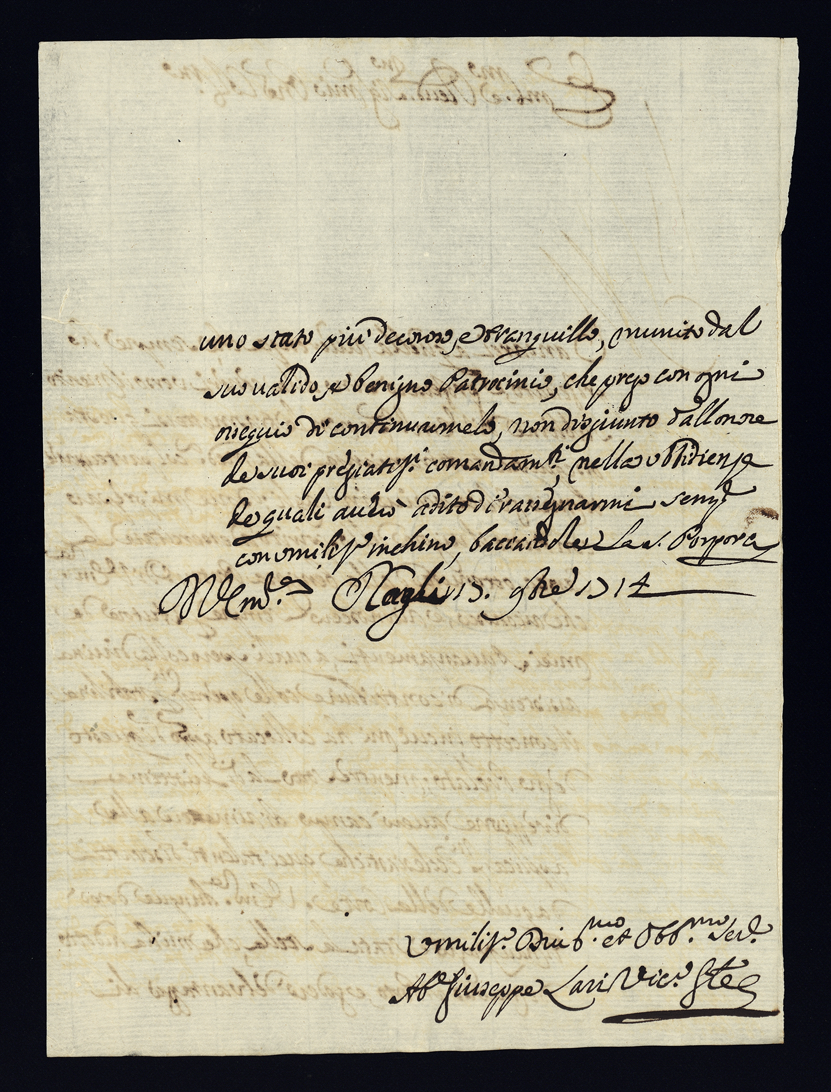 uno stato più decoroso, e tranquillo, munito dal
suo valido, e benigno Patrocinio, che prego con ogni
ossequio di continuarmelo, non disgiunto dall onore
de suoi pregiatis.i comandam.ti, nella ubbidienza
de quali avrò adito di rassegnarmi semp.e
con umilis.o inchino, baccandole La S. Porpora
Di V. Em.a 13. 9bre 1714
Umilis.o Div.mo et Obb.mo Ser.e
Ab.e Giuseppe Lari Vic.o Gle